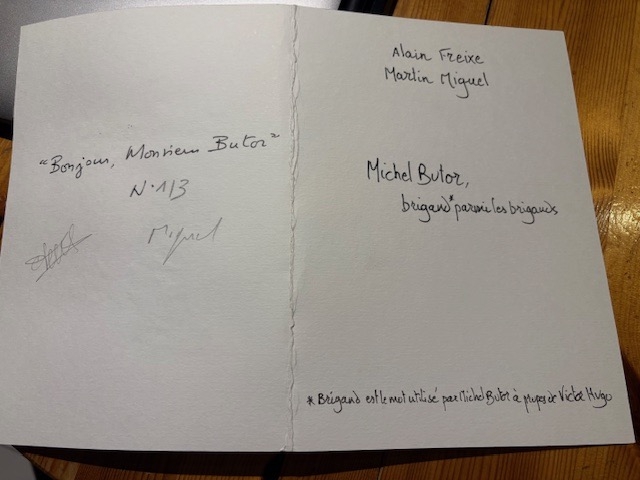 "Bonjour, Monsieur Butor"
N° 1/3
Miguel
Alain Freixe
Martin Miguel
Michel Butor,
brigand* parmi les brigands
* Brigand est le mot utilisé par Michel Butor à propos de Victor Hugo